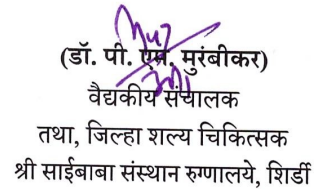 (डॉ. पी. एम. मुरंबीकर)
वैद्यकीय संचालक
तथा, जिल्हा शल्य चिकित्सक
श्री साईबाबा संस्थान रुग्णालये, शिर्डी